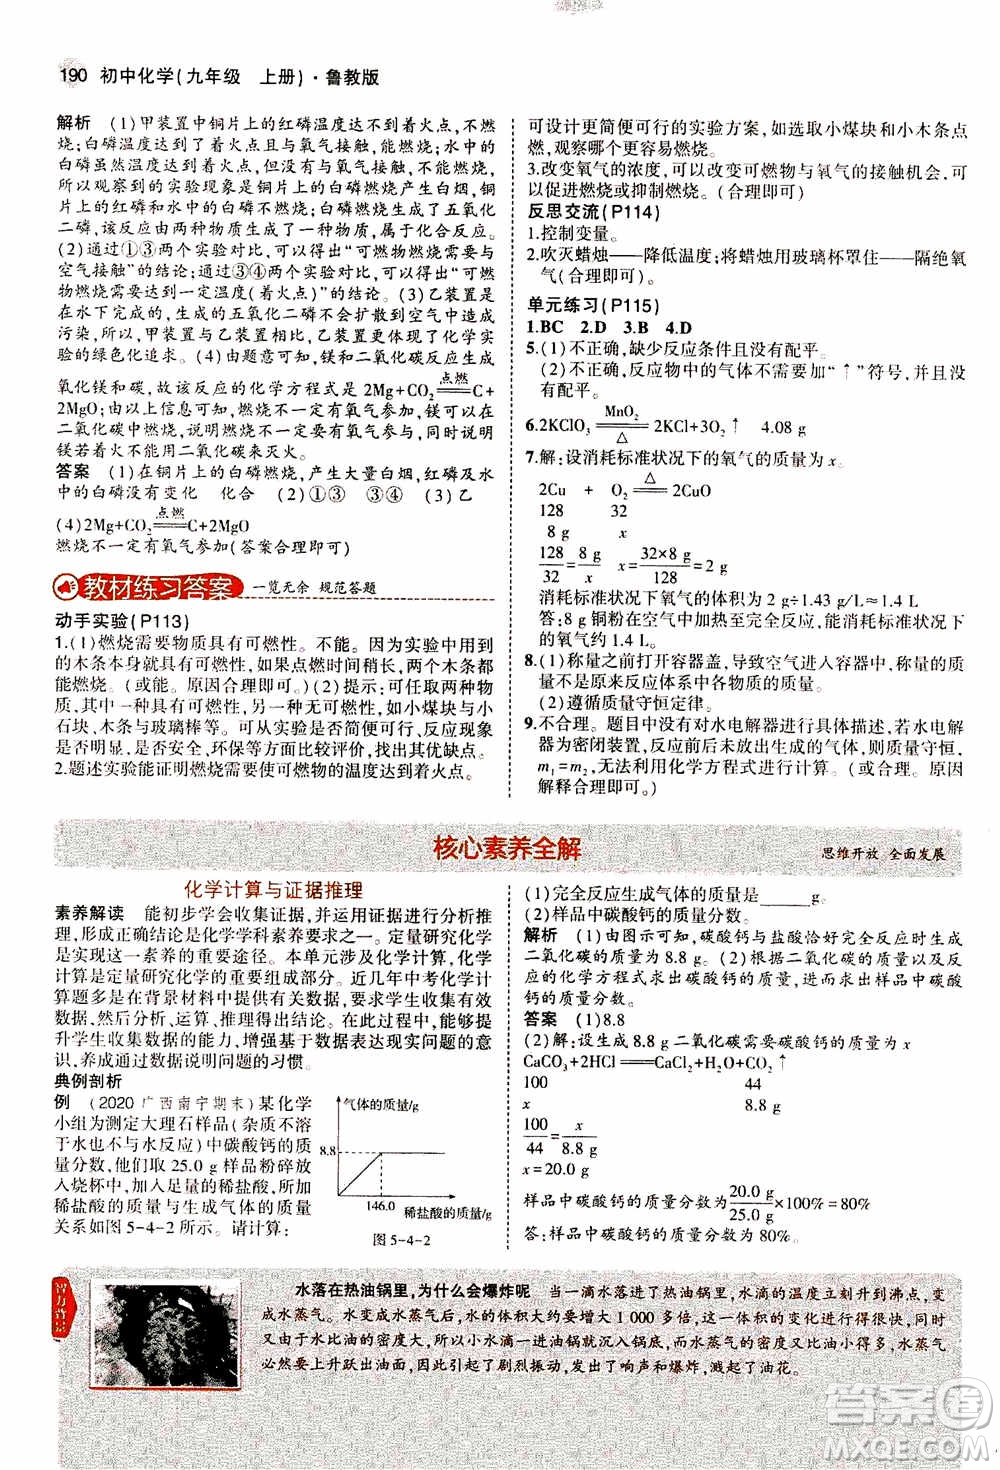 190 初中化学(九年级 上册)·鲁教版
解析 (1)甲装置中铜片上的红磷温度达不到着火点,不燃
烧;水中的白磷没有与氧气接触,不能燃烧;铜片上的
白磷虽然温度达到着火点,但没有与氧气接触,不能燃烧,
所以观察到的实验现象是铜片上的白磷燃烧产生白烟,铜
片上的红磷和水中的白磷不燃烧;白磷燃烧生成了五氧化
二磷,该反应由两种物质生成了一种物质,属于化合反应。
(2)通过①③两个实验对比,可以得出“可燃物燃烧需要与
空气接触”的结论;通过③④两个实验对比,可以得出“可燃
物燃烧需要达到一定温度(着火点)”的结论。(3)乙装置的
反应在水下完成,生成的五氧化二磷不会扩散到空气中造成
污染,所以,甲装置与乙装置相比,乙装置更体现了化学实
验的绿色化追求。(4)由题意可知,镁和二氧化碳反应生成
氧化镁和碳,故该反应的化学方程式是 2Mg+CO₂ =点燃= C+
2MgO
二氧化碳中燃烧,所以燃烧不一定有氧气参加,同时也说明
镁若着火不能用二氧化碳来灭火。
答案 (1)在铜片上的白磷燃烧,产生大量白烟,红磷及水
中的白磷没有变化 化合 (2)①③ ③④ (3)乙
(4)2Mg+CO₂ =点燃= C+2MgO
燃烧不一定有氧气参加(答案合理即可)
教材练习答案 一览无余 规范答题
动手实验(P113)
1.(1)燃烧需要物质具有可燃性。不能。因为实验中用到
的木条本身就具有可燃性,如果点燃时间稍长,两根木条都
能燃烧。(或能。原因合理即可。)(2)提示:可选取两种物
质,其中一种具有可燃性,另一种无可燃性,如小煤块与小
石块,木条与玻璃棒等。可从实验是否简便可行,反应现象
是否明显,是否安全、环保等方面比较评价,找出其优缺点。
2.题述实验能证明燃烧需要使可燃物的温度达到着火点。
可设计更简便可行的实验方案,如选取小煤块和小木条点
燃,观察哪个更容易燃烧。
3.改变氧气的浓度,可以改变可燃物与氧气的接触机会,可
以促进燃烧或抑制燃烧。(合理即可)
反思交流(P114)
1.控制变量。
2.吹灭蜡烛——降低温度;将蜡烛用玻璃杯罩住——隔绝氧
气(合理即可)。
单元练习(P115)
1.BC 2.D 3.B 4.D
5.(1)不正确,缺少反应条件且没有配平。
(2)不正确,反应物中的气体不需要加“↑”符号,并且
没有配平。
6.2KClO₃ =MnO₂/△= 2KCl+3O₂↑ 4.08 g
7.解:设消耗标准状况下的氧气的质量为 x。
2Cu + O₂ =△= 2CuO
128 32
8 g x
128/32=8 g/x x=32×8 g/128=2 g
消耗标准状况下氧气的体积为 2 g÷1.43 g/L≈1.4 L
答:8 g铜粉在空气中加热至完全反应,能消耗标准状况下的
氧气约 1.4 L。
8.(1)称量之前打开容器盖,导致空气进入容器,称量的质
量不是原来反应体系中各物质的总质量。
(2)遵循质量守恒定律。
9.不合理。题目中没有对水电解器进行具体描述,若水电解
器为密闭装置,反应前后未放出生成的气体,则质量守恒,
m₁=m₂,无法利用化学方程式进行计算。(或合理。原因
解释合理即可。)
核心素养全解 思维开放 全面发展
化学计算与证据推理
素养解读 能初步学会收集证据,并运用证据进行分析推
理,形成正确结论是化学学科素养要求之一。定量研究化学
是实现这一素养的重要途径。本单元涉及化学计算,化学
计算是定量研究化学的重要组成部分。近几年中考化学计
算题多是在背景材料中提供有关数据,要求学生收集有效
数据,然后分析、运算、推理得出结论。在此过程中,能够提
升学生收集数据的能力,增强基于数据表达现实问题的意
识,养成通过数据说明问题的习惯。
典例剖析
例 (2020广西南宁期末)某化学
小组为测定大理石样品(杂质不溶
于水也不与水反应)中碳酸钙的质
量分数,他们取 25.0 g 样品粉碎放
入烧杯中,加入足量的稀盐酸,所加
稀盐酸的质量与生成气体的质量
关系如图 5-4-2 所示。请计算:
气体的质量/g
8.8
146.0 稀盐酸的质量/g
图 5-4-2
(1)完全反应生成气体的质量是______g。
(2)样品中碳酸钙的质量分数。
解析 (1)由图示可知,碳酸钙与盐酸恰好完全反应生成
二氧化碳的质量为 8.8 g。(2)根据二氧化碳的质量和反应
的化学方程式求出碳酸钙的质量,进而求出碳酸钙的质量
分数。
答案 (1)8.8
(2)解:设生成 8.8 g 二氧化碳需要碳酸钙的质量为 x
CaCO₃+2HCl=CaCl₂+H₂O+CO₂↑
100 44
x 8.8 g
100/44=x/8.8 g
x=20.0 g
样品中碳酸钙的质量分数为20.0 g/25.0 g×100%=80%
答:样品中碳酸钙的质量分数为 80%。
智力背景
水落在热油锅里,为什么会爆炸呢 当一滴水落在了热油锅里,水滴的温度立刻升到沸点,变
成水蒸气。水变成水蒸气后,水的体积大约要增大 1 000 多倍,这一体积的变化进行得很快,同时
又由于水的密度比油的密度大,所以水滴一进油锅就沉入锅底。而水蒸气的密度又很小,水蒸气
必然要上升跃出油面,因此又引起了剧烈振动,发出了响声和爆炸,溅起了油花。
答案圈
MXQE.COM